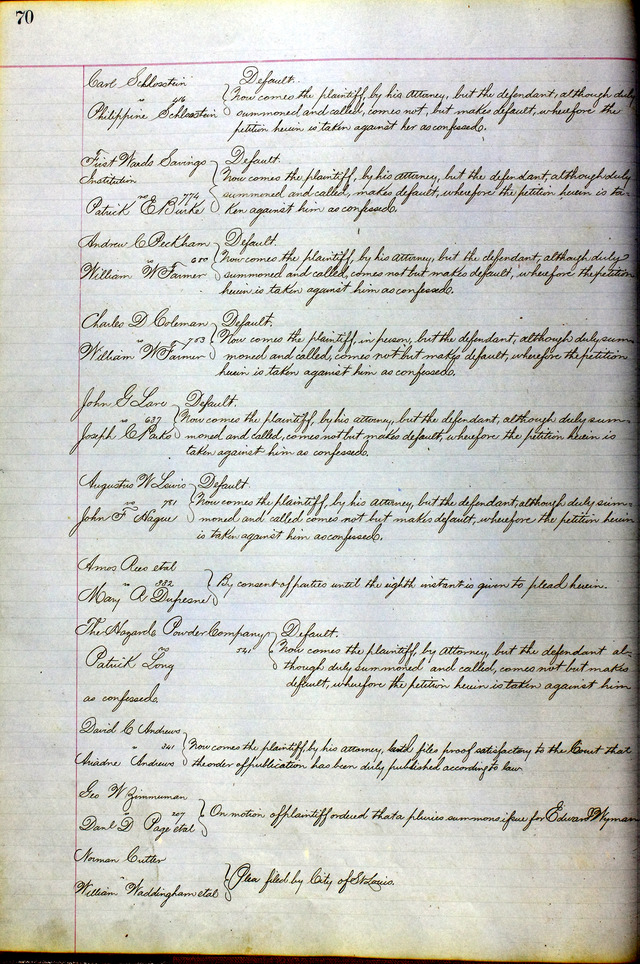 70
Carl Schlosstein
vs 416
Philippine Schlosstein
Default.
Now comes the plaintiff, by his Attorney, but the defendant, although duly
summoned and called, comes not, but makes default, wherefore the
petition herein is taken against her as confessed.
First Wards Savings
Institution
vs 774
Patrick E Burke
Default.
Now comes the plaintiff, by his attorney, but the defendant, although duly
summoned and called, makes default, wherefore the petition herein is ta-
ken against him as confessed.
Andrew C Peckham
vs 680
William W Farmer
Default.
Now comes the plaintiff, by his attorney, but the defendant, although duly
summoned and called, comes not but makes default, wherefore the petition
herein is taken against him as confessed.
Charles D Coleman
vs 753
William W Farmer
Default.
Now comes the plaintiff, in person, but the defendant, although duly sum-
moned and called, comes not but makes default, wherefore the petition
herein is taken against him as confessed.
John G
vs 637
Joseph C Parks
Default.
Now comes the plaintiff, by his attorney, but the defendant, although duly sum-
moned and called, comes not but makes default, wherefore the petition herein is
taken against him as confessed.
Augustus W Lewis
vs 781
John F Hague
Default.
Now comes the plaintiff, by his Attorney, but the defendant, although duly sum-
moned and called comes not but makes default, wherefore the petition herein
is taken against him as confessed.
Amos Rees etal
vs 332
Mary A Dufresne
By consent of parties until the eighth instant is given to plead herein.
The Hazard Powder Company
vs 541
Patrick Long
Default.
Now comes the plaintiff, by Attorney, but the defendant al-
though duly summoned and called, comes not but makes
default, wherefore the petition herein is taken against him
as confessed.
David C Andrews
vs 341
Ariadne Andrews
Now comes the plaintiff, by his attorney, files proof satisfactory to the Court that
the order of publication has been duly published according to law
Geo W Zimmerman
vs 207
Danl D Page etal
On motion of plaintiff ordered that a pluries summons issue for Edward Wyman
Norman Cutter
vs
William Waddingham etal
Plea filed by City of St Louis.